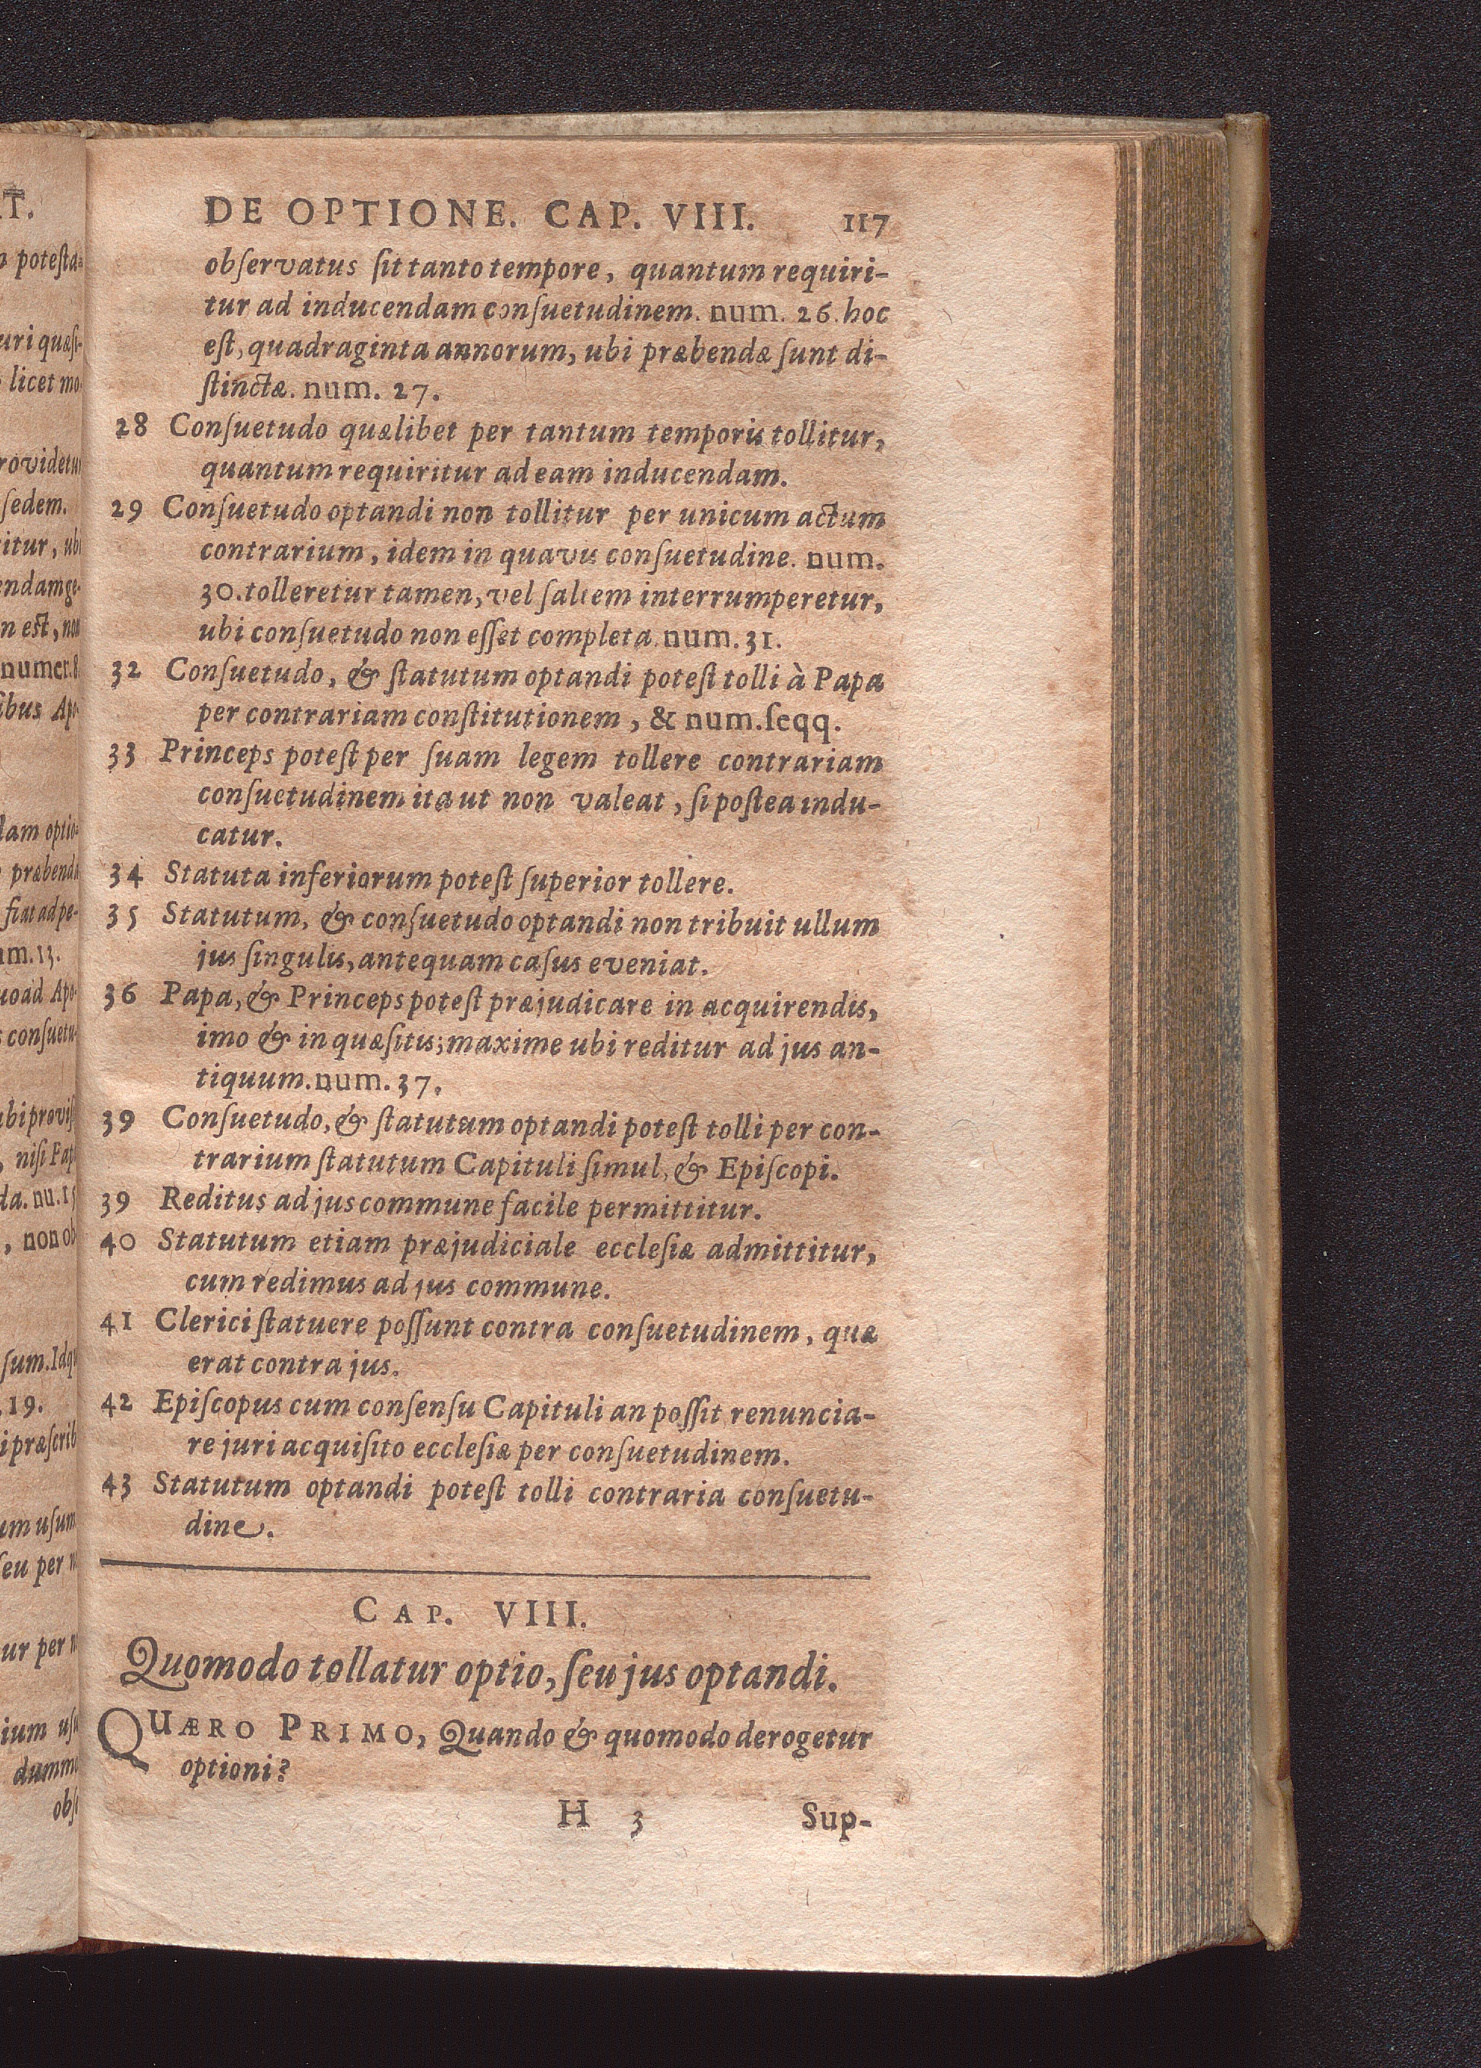 DE OPTIONE. CAP. VIII. 117
observatus sit tanto tempore, quantum requiri-
tur ad inducendam consuetudinem. num. 26. hoc
est, quadraginta annorum, ubi præbendæ sunt di-
stinctæ. num. 27.
28 Consuetudo quælibet per tantum temporis tollitur,
quantum requiritur ad eam inducendam.
29 Consuetudo optandi non tollitur per unicum actum
contrarium, idem in quavis consuetudine. num.
30. tolleretur tamen, vel saltem interrumperetur,
ubi consuetudo non esset completa. num. 31.
32 Consuetudo, & statutum optandi potest tolli à Papa
per contrariam constitutionem, & num. seqq.
33 Princeps potest per suam legem tollere contrariam
consuetudinem ita ut non valeat, si postea indu-
catur.
34 Statuta inferiorum potest superior tollere.
35 Statutum, & consuetudo optandi non tribuit ullum
jus singulis, antequam casus eveniat.
36 Papa, & Princeps potest præjudicare in acquirendis,
imo & in quæsitis; maxime ubi reditur ad jus an-
tiquum. num. 37.
39 Consuetudo, & statutum optandi potest tolli per con-
trarium statutum Capituli simul, & Episcopi.
39 Reditus ad jus commune facile permittitur.
40 Statutum etiam præjudiciale ecclesiæ admittitur,
cum redimus ad jus commune.
41 Clerici statuere possunt contra consuetudinem, quæ
erat contra jus.
42 Episcopus cum consensu Capituli an possit renuncia-
re juri acquisito ecclesiæ per consuetudinem.
43 Statutum optandi potest tolli contraria consuetu-
dine.
CAP. VIII.
Quomodo tollatur optio, seu jus optandi.
QUÆRO PRIMO, Quando & quomodo derogetur
optioni?
H 3 Sup-